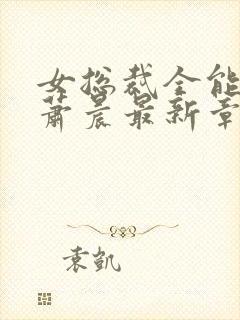 女总裁全能
萧晨最新章
袁凯